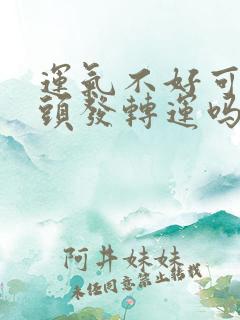 運氣不好可
頭發轉運吗
阿井妹妹
未经同意禁止转载